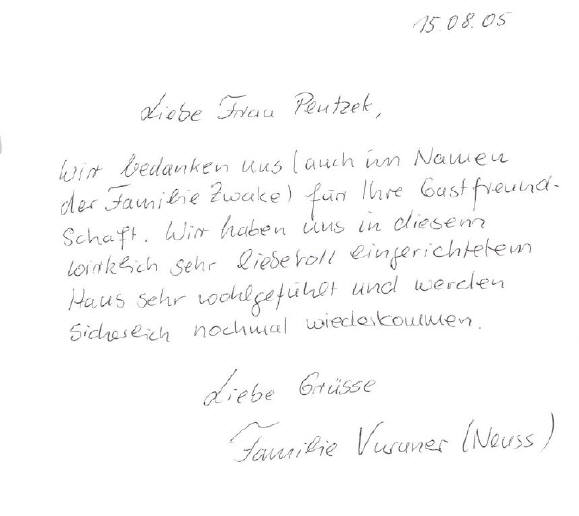 15.08.05
Liebe Frau Pentzek,
Wir bedanken uns (auch im Namen
der Familie Zwake) für Ihre Gastfreund-
schaft. Wir haben uns in diesem
wirklich sehr liebevoll eingerichtetem
Haus sehr wohlgefühlt und werden
sicherlich nochmal wiederkommen.
Liebe Grüsse
Familie (Neuss)